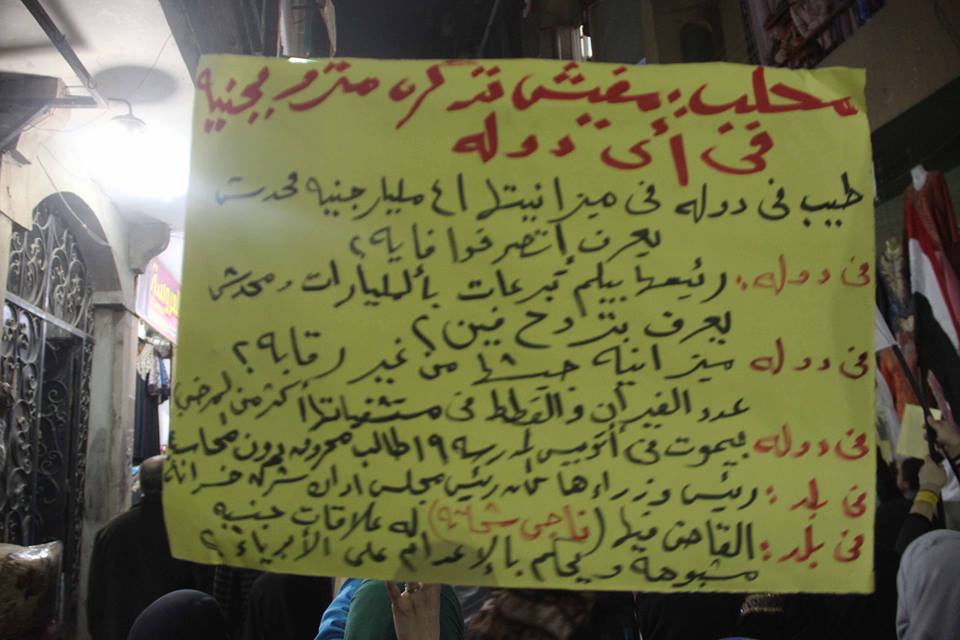 محلب: مفيش تذكرة مترو بجنيه
فى أى دوله
طيب فى دوله فى ميزانيتها ٤١ مليار جنيه محدش
يعرف اتصرفوا فايه؟
فى دوله: رئيسها بيلم تبرعات بالمليارات ومحدش
يعرف بتروح فين؟
فى دوله ميزانية جيشها من غير رقابة؟
عدد الفيران والقطط فى مستشفياتها أكثر من المرضى
فى دوله بيموت فى أتوبيس لمدرسه ١٩ طالب محروق بدون محاسبة
فى بلد: رئيس وزراءها كان رئيس مجلس ادارة شركة خسرانة
فى بلد: القاضى فيها (ناجى شحاته) له علاقات جنسيه
مشبوهة ويحكم بالإعدام على الأبرياء؟